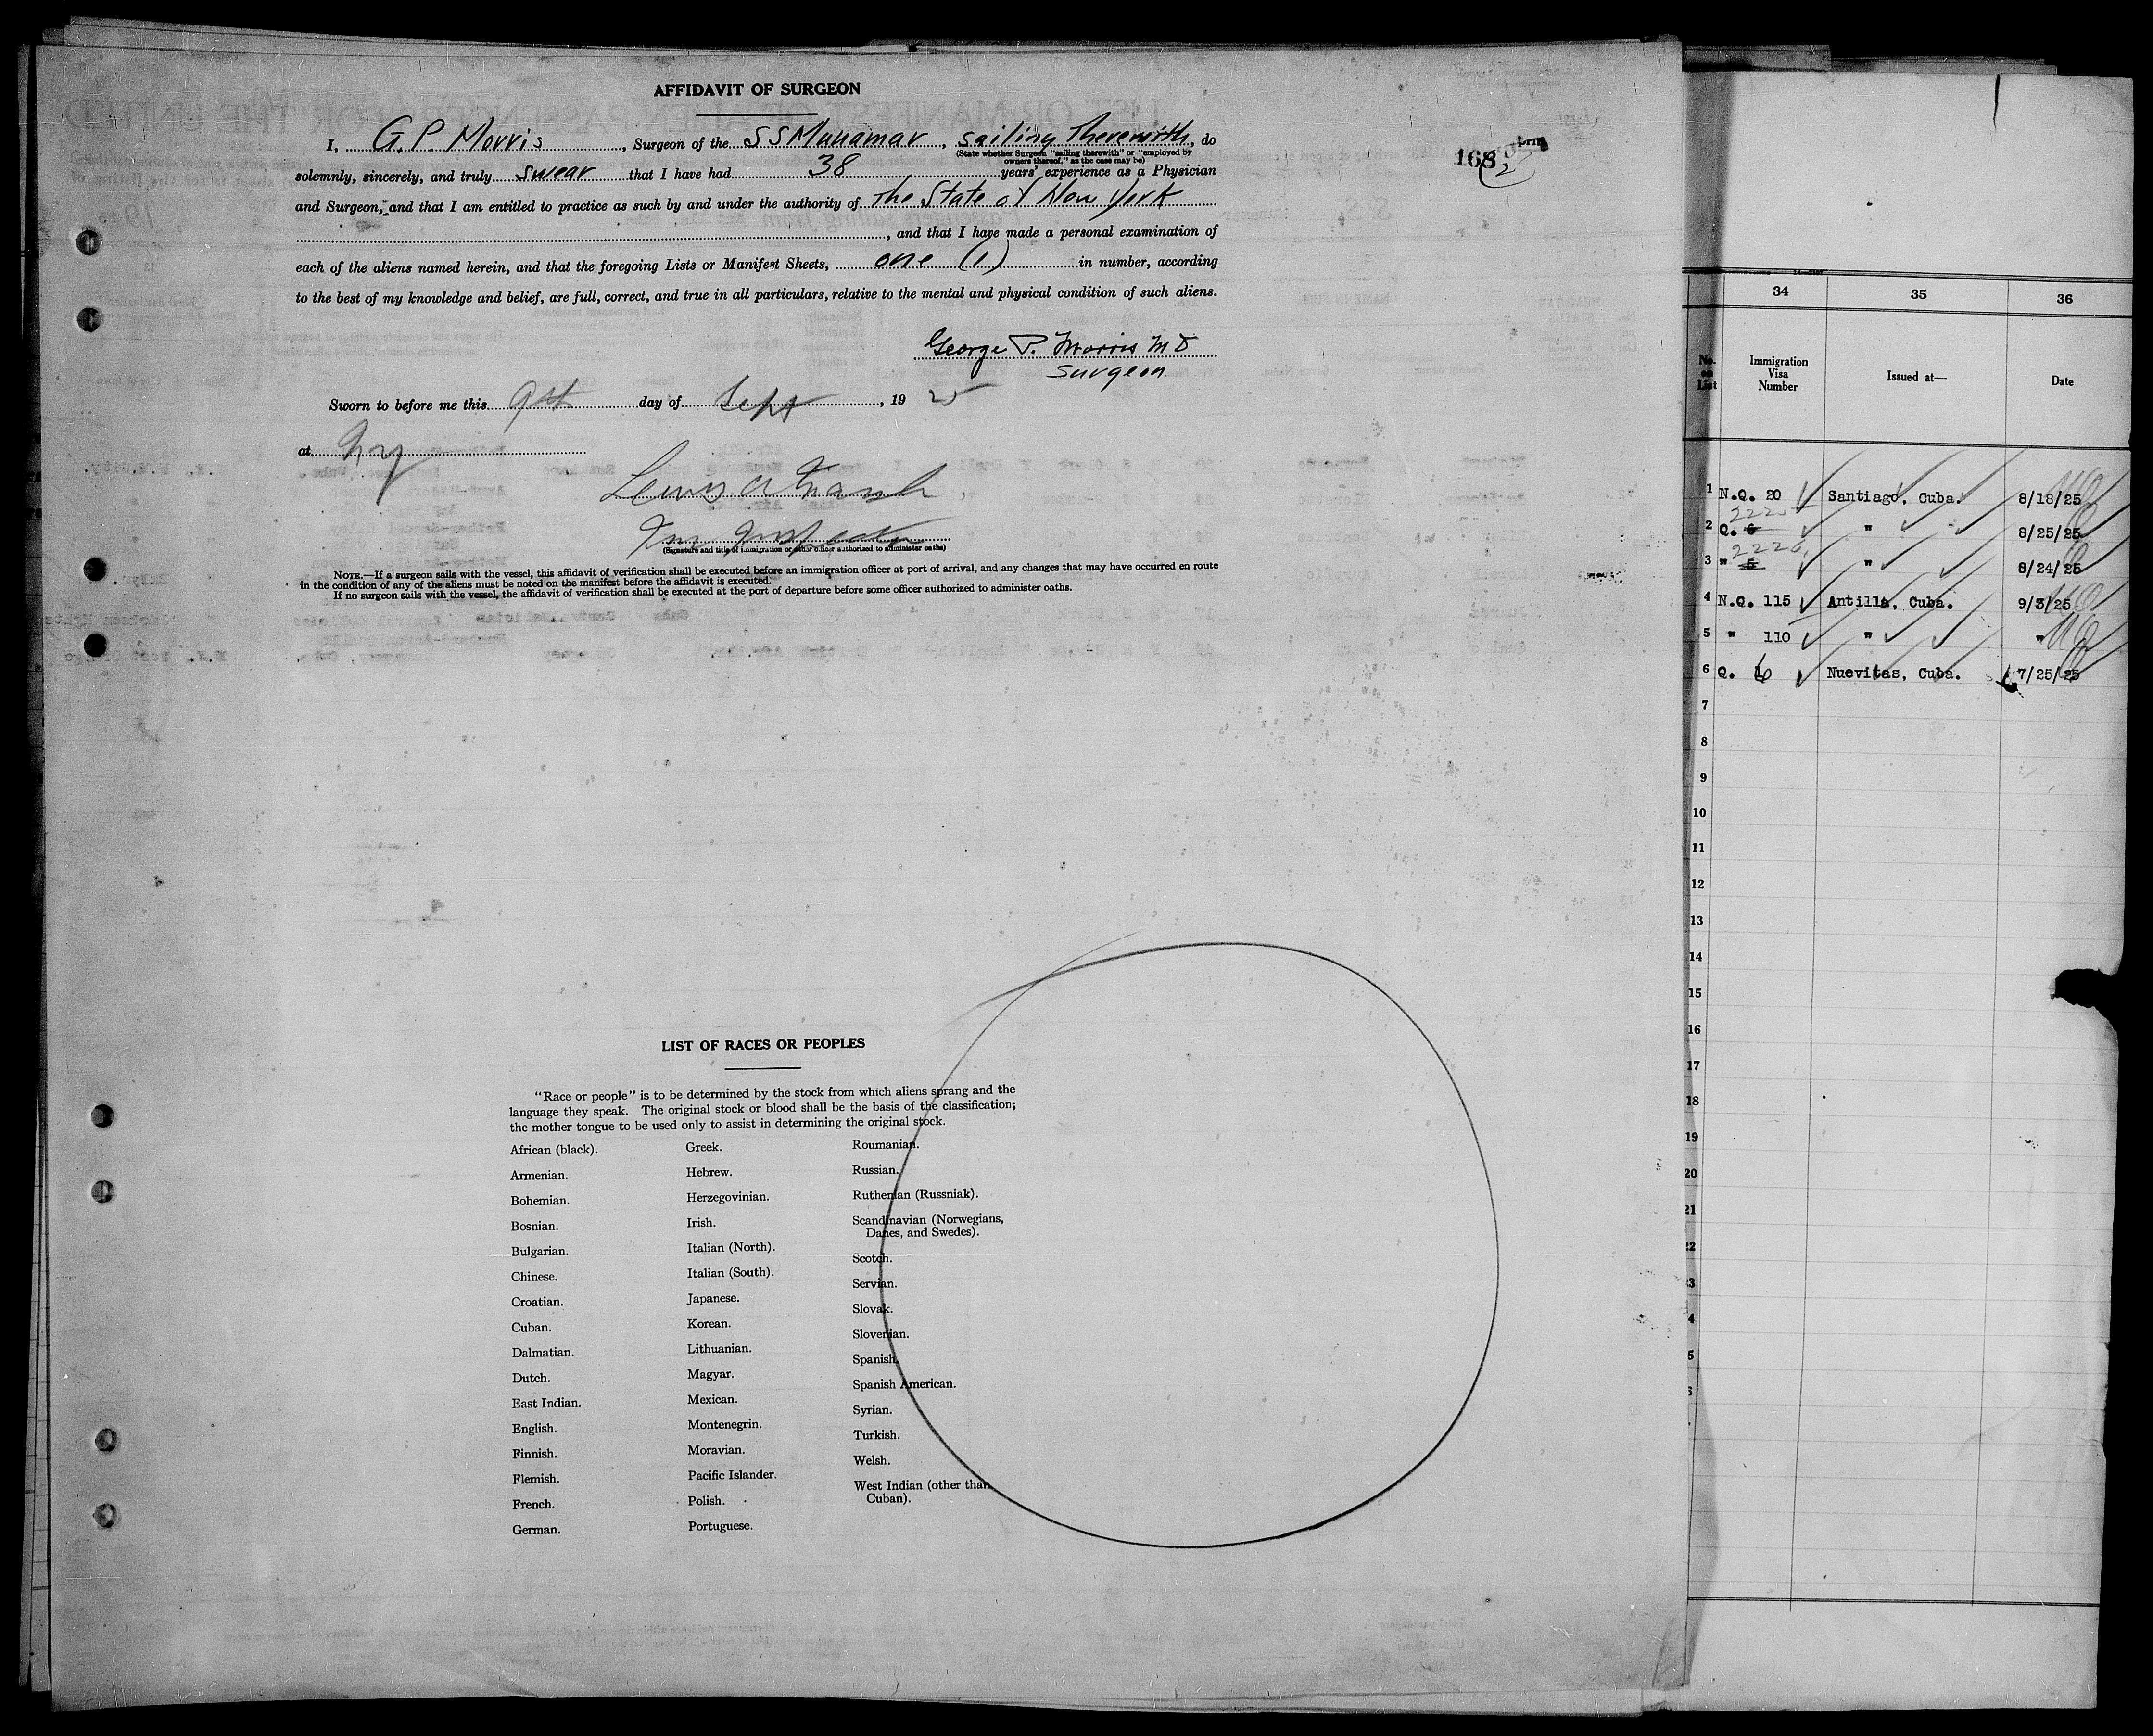 AFFIDAVIT OF SURGEON
I, G. P. Morris, Surgeon of the SS Munamar, sailing Therewith, do
(State whether Surgeon "sailing therewith" or "employed by
owners thereof," as the case may be)
solemnly, sincerely, and truly swear that I have had 38 years' experience as a Physician
and Surgeon, and that I am entitled to practice as such by and under the authority of The State of New York
, and that I have made a personal examination of
each of the aliens named herein, and that the foregoing Lists or Manifest Sheets, one (1) in number, according
to the best of my knowledge and belief, are full, correct, and true in all particulars, relative to the mental and physical condition of such aliens.
George P. Morris M D
Surgeon
Sworn to before me this 9th day of Sept, 1925
at NY
Lewis A
Imm Inspector
(Signature and title of immigration or other officer authorized to administer oaths)
NOTE.—If a surgeon sails with the vessel, this affidavit of verification shall be executed before an immigration officer at port of arrival, and any changes that may have occurred en route
in the condition of any of the aliens must be noted on the manifest before the affidavit is executed.
If no surgeon sails with the vessel, the affidavit of verification shall be executed at the port of departure before some officer authorized to administer oaths.
168
2
LIST OF RACES OR PEOPLES
"Race or people" is to be determined by the stock from which aliens sprang and the
language they speak. The original stock or blood shall be the basis of the classification;
the mother tongue to be used only to assist in determining the original stock.
African (black).
Armenian.
Bohemian.
Bosnian.
Bulgarian.
Chinese.
Croatian.
Cuban.
Dalmatian.
Dutch.
East Indian.
English.
Finnish.
Flemish.
French.
German.
Greek.
Hebrew.
Herzegovinian.
Irish.
Italian (North).
Italian (South).
Japanese.
Korean.
Lithuanian.
Magyar.
Mexican.
Montenegrin.
Moravian.
Pacific Islander.
Polish.
Portuguese.
Roumanian.
Russian.
Ruthenian (Russniak).
Scandinavian (Norwegians,
Danes, and Swedes).
Scotch.
Servian.
Slovak.
Slovenian.
Spanish.
Spanish American.
Syrian.
Turkish.
Welsh.
West Indian (other than
Cuban).
34 35 36
No. on List Immigration Visa Number Issued at— Date
1 N.Q. 20 Santiago, Cuba. 8/18/25
2225
2 Q. 6 " 8/25/25
2226
3 " 5 " 8/24/25
4 N.Q. 115 Antilla, Cuba. 9/3/25
5 " 110 " "
6 Q. 6 Nuevitas, Cuba. 7/25/25
7
8
9
10
11
12
13
14
15
16
17
18
19
20
21
22
3
4
5